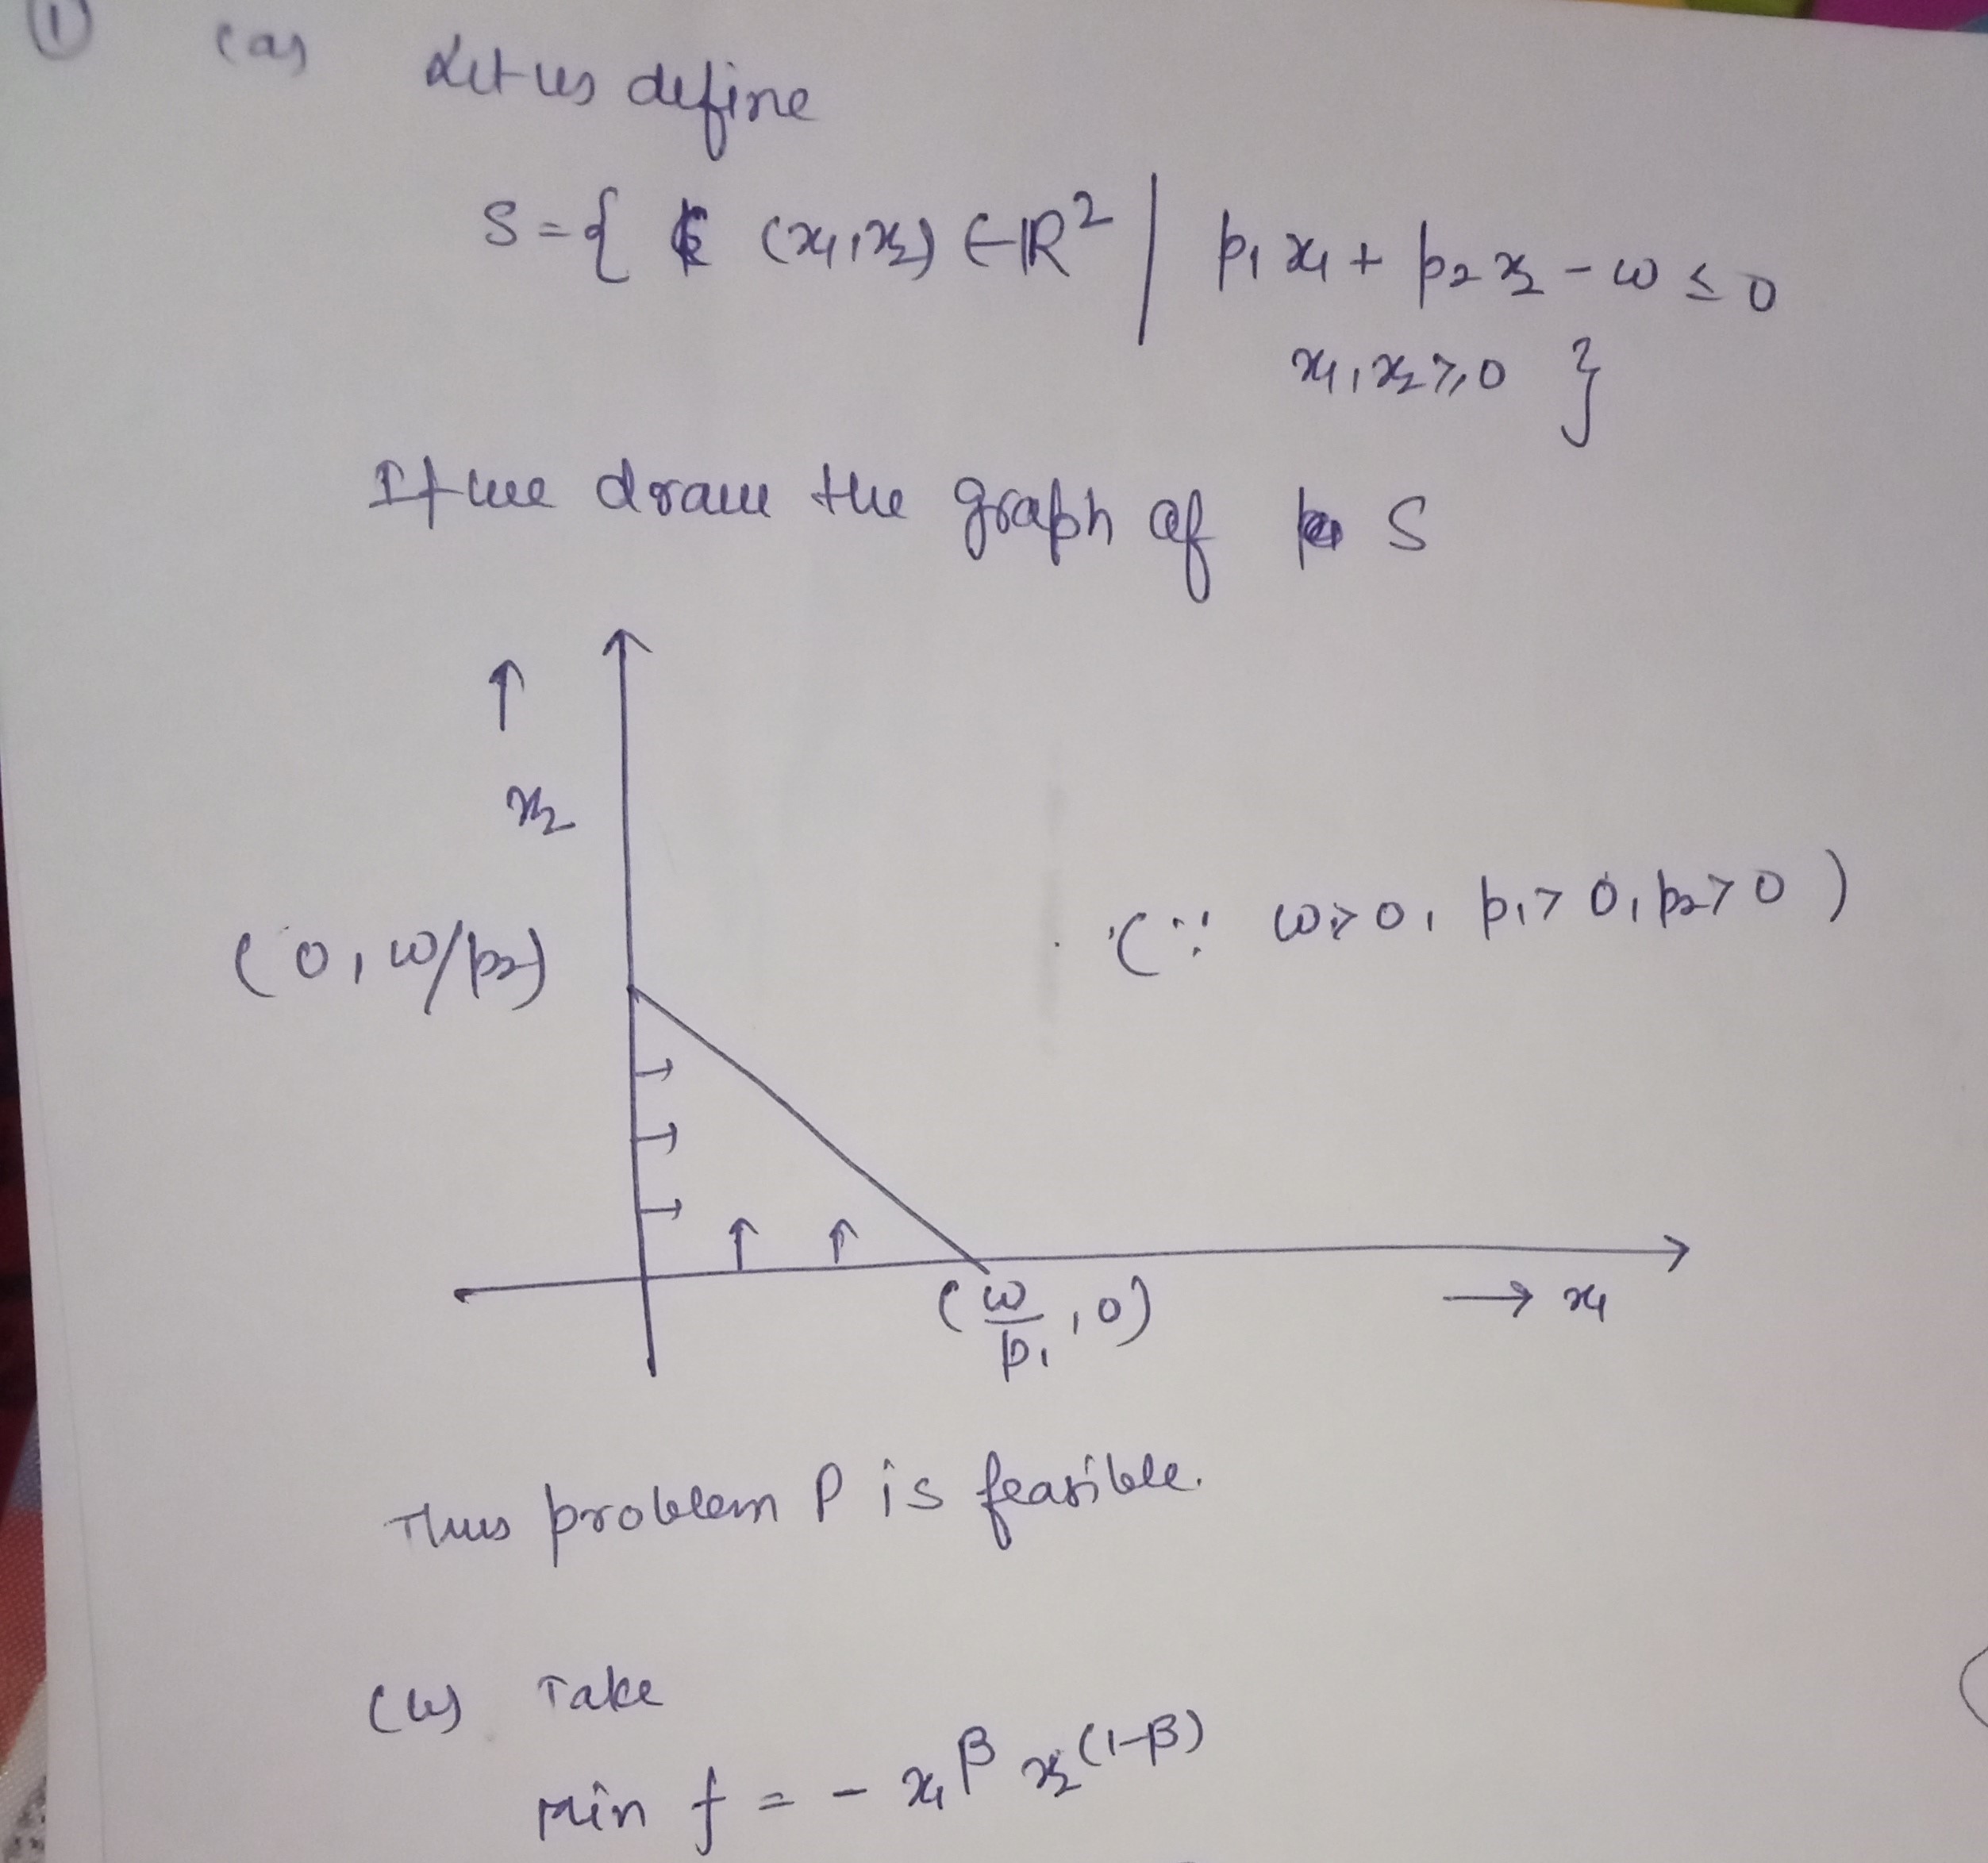 ① (a) Let us define
S = { (x₁, x₂) ∈ ℝ² | p₁x₁ + p₂x₂ - ω ≤ 0
x₁, x₂ ≥ 0 }
If we draw the graph of S
↑
x₂
(0, ω/p₂)
(∵ ω>0, p₁>0, p₂>0)
(ω/p₁, 0)
→ x₁
Thus problem P is feasible.
(b) Take
Min f = - x₁^β x₂^(1-β)